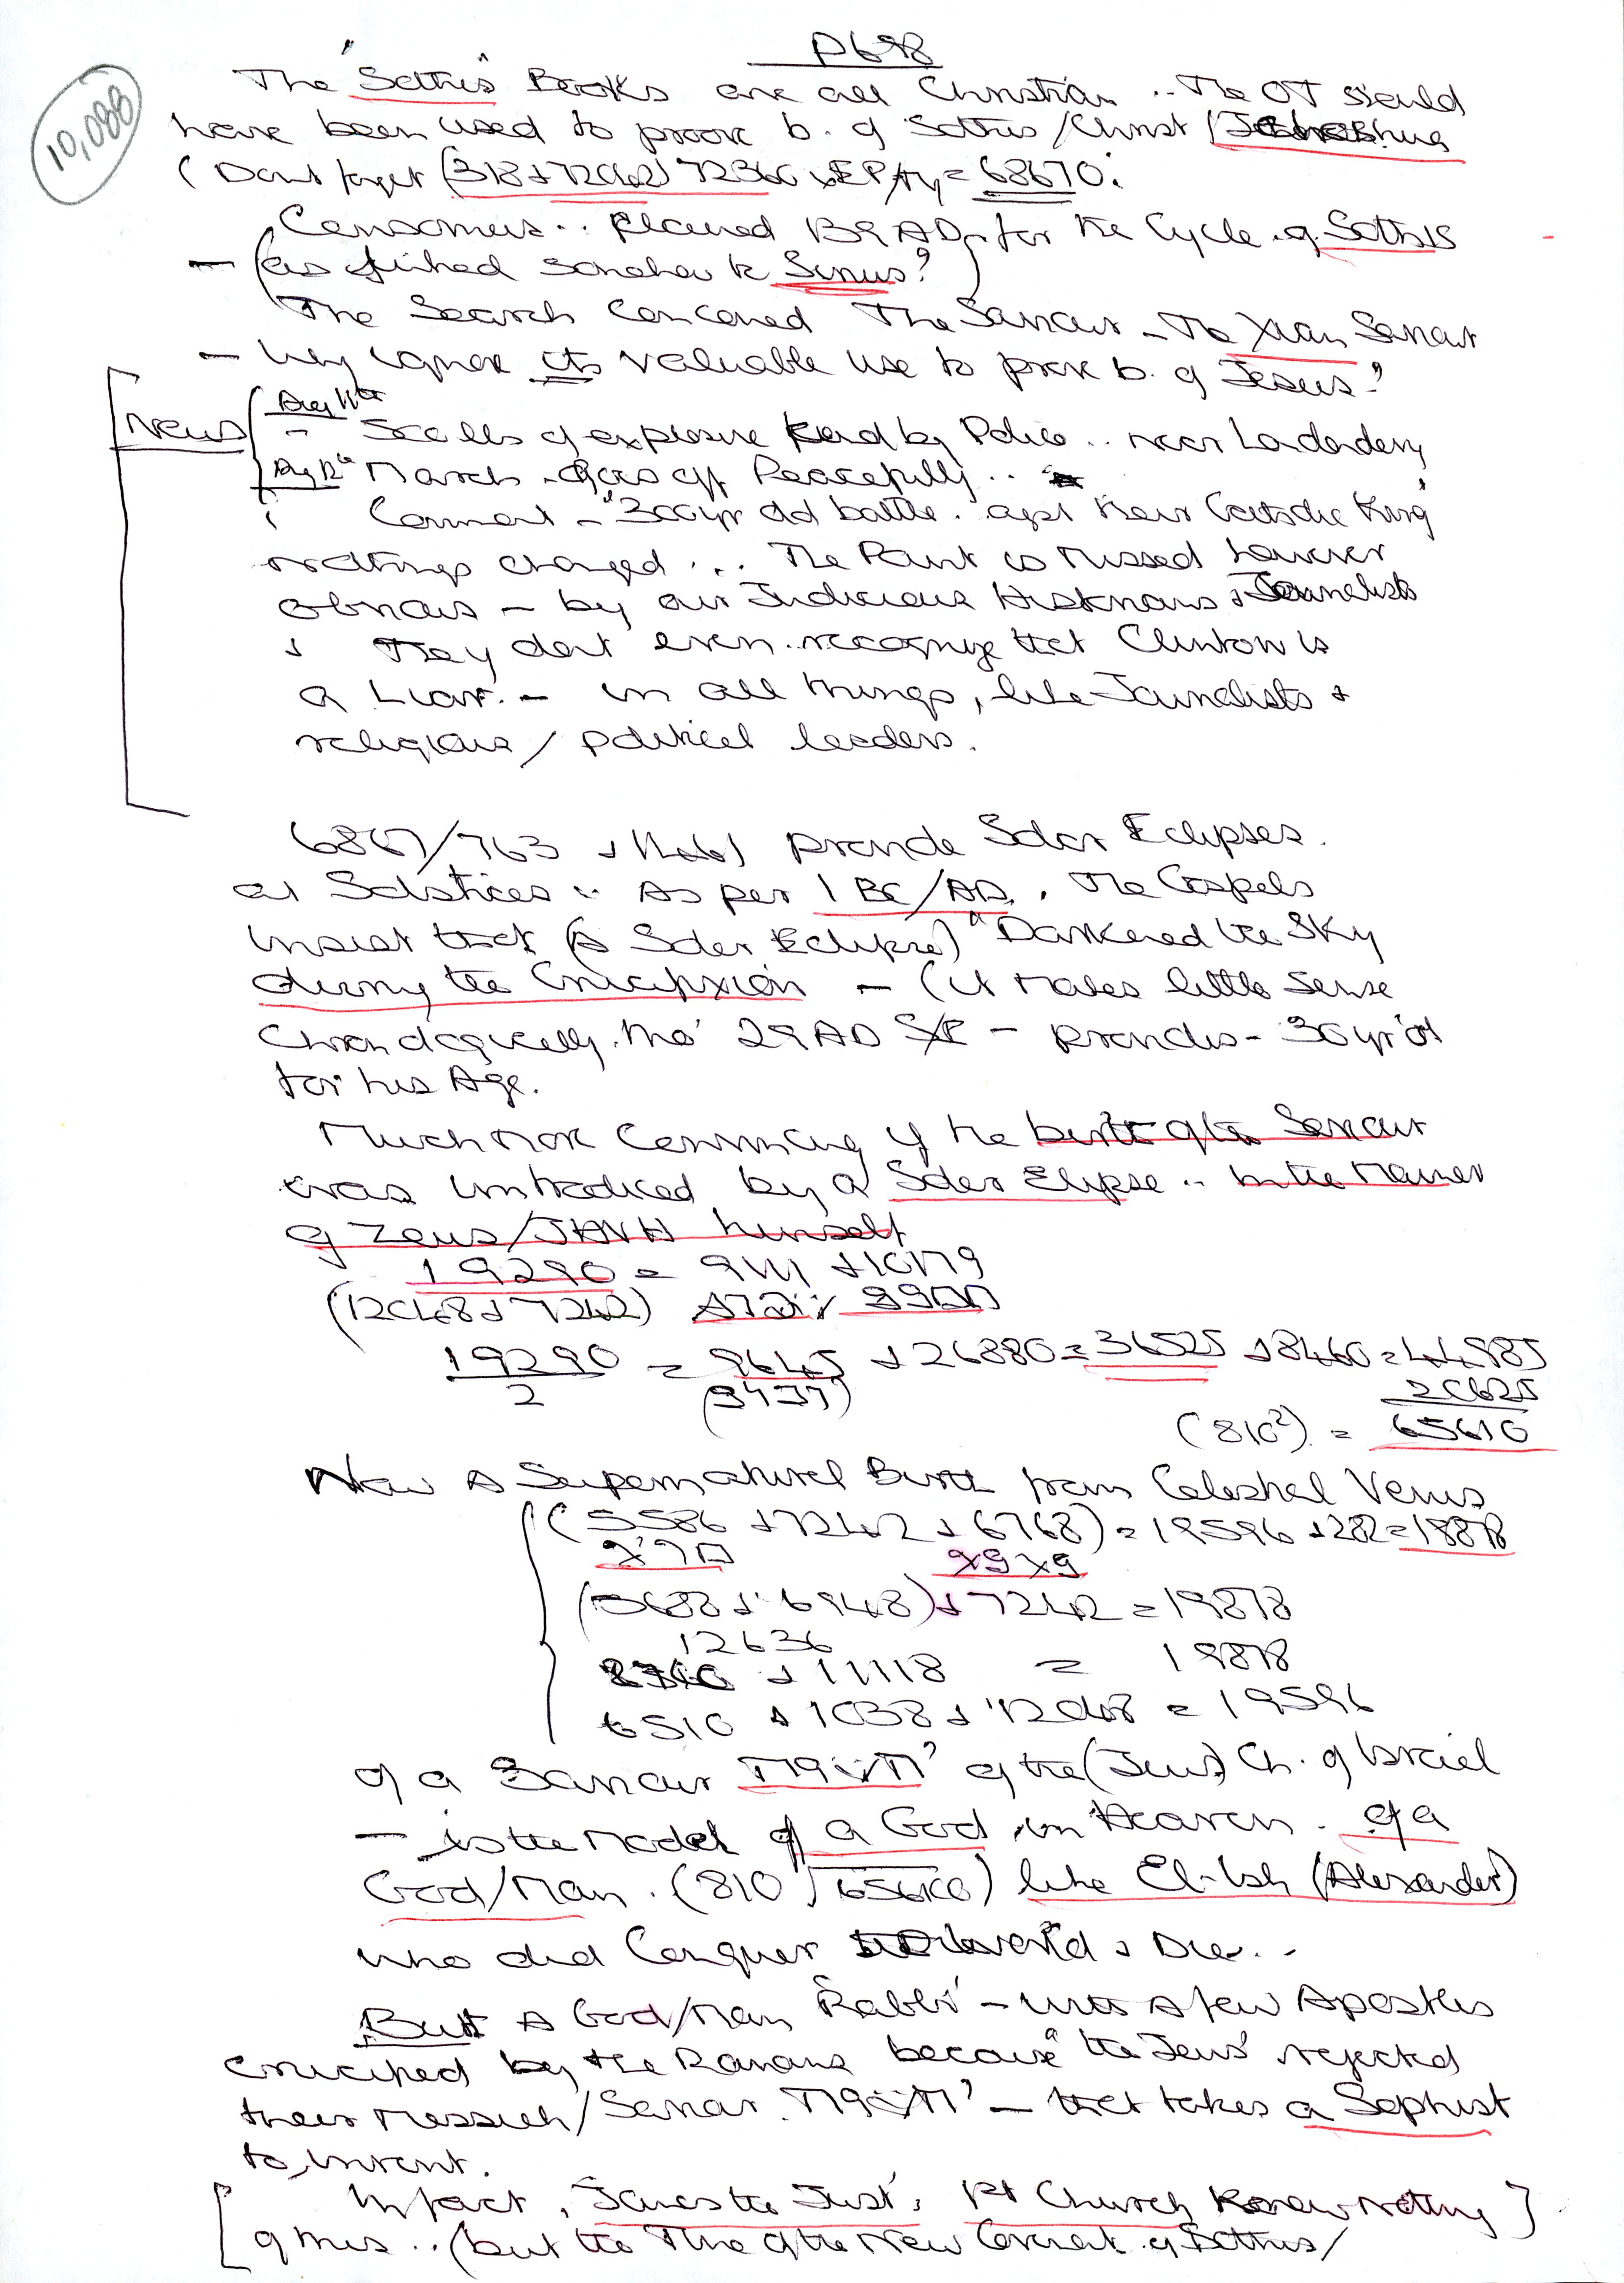 P698
10,088
The "Sothis" Books are all Christian .. The OT should
have been used to prove b. of Sothis / Christ /
(Dont forget (318 + 72042) 72360 = 68670.
Censorinus .. placed 139 AD for the Cycle of Sothis
– (as linked somehow to Sirius?)
The Search concerned The Saviour – The Xian Saviour
– Why ignore its valuable use to prove b. of Jesus?
News
Aug 11th
– of explosive found by Police .. near Londonderry
Aug 12th March – goes off Peacefully ..
Comment – "300 yr old battle. agst their Catholic King"
nothings changed ... The Point is Missed however
obvious – by our Judicious Historians & Journalists
& They dont even recognize that Clinton is
a Liar. – in all things, like Journalists &
religious / political leaders.
/763 provide Solar Eclipses.
at Solstices .. As per 1 BC/AD. The Gospels
insist that (A Solar Eclipse) "Darkened the Sky
during the Crucifixion – (it makes little sense
Chronologically. tho' 29 AD S/E – provides – 30 yr old
for his Age.
Much more Convincing if the birth of the Saviour
was introduced by a Solar Elipse .. in the Manner
of Zeus/JHVH himself
19290 = 9111 + 10179
(12048 + 7242)
19290 = 9645 + 26880 = 36525 + 8460 = 44985
2
20625
(810²) = 65610
Now A Supernatural Birth from Celestial Venus
(5586 + 7242 + 6768) = 19596 + 282 = 19878
(5688 + 6948) + 7242 = 19878
12636
+ 11118 = 19878
6510 + 1038 + 12048 = 19596
of a Saviour of the (Jews) Ch. of Israel
– is the Model of a God in Heaven . of a
God/Man. (810 √65610) like El-Ish (Alexander)
who did Conquer the World & Die ..
But A God/Man 'Rabbi' – with a few Apostles
crucified by the Romans because "the Jews" rejected
their Messiah/Saviour – that takes a Sophist
to invent.
In fact, 'James the Just', 1st Church Knew nothing
of this .. (but the Time of the New Covenant of Sothis/